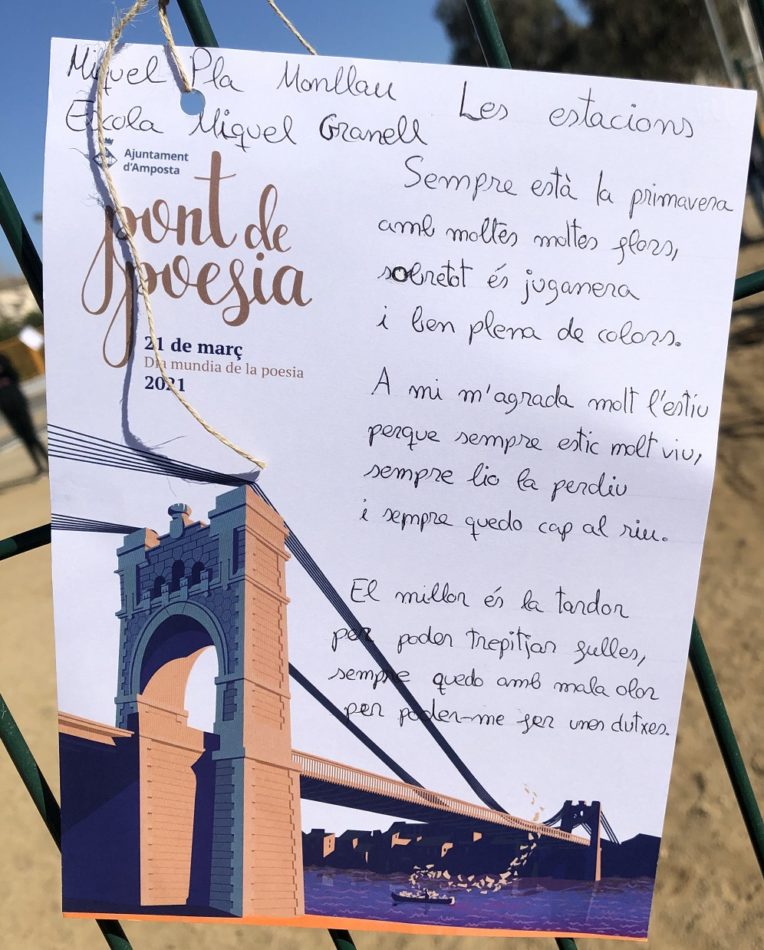 Miquel Pla Monllau
Escola Miquel Granell
Les estacions
Ajuntament
d'Amposta
pont de
poesia
21 de març
Dia mundia de la poesia
2021
Sempre està la primavera
amb moltes moltes flors,
sobretot és juganera
i ben plena de colors.
A mi m'agrada molt l'estiu
perque sempre estic molt viu,
sempre lio la perdiu
i sempre quedo cap al riu.
El millor és la tardor
per poder trepitjar fulles,
sempre quedo amb mala olor
per poder-me fer unes dutxes.